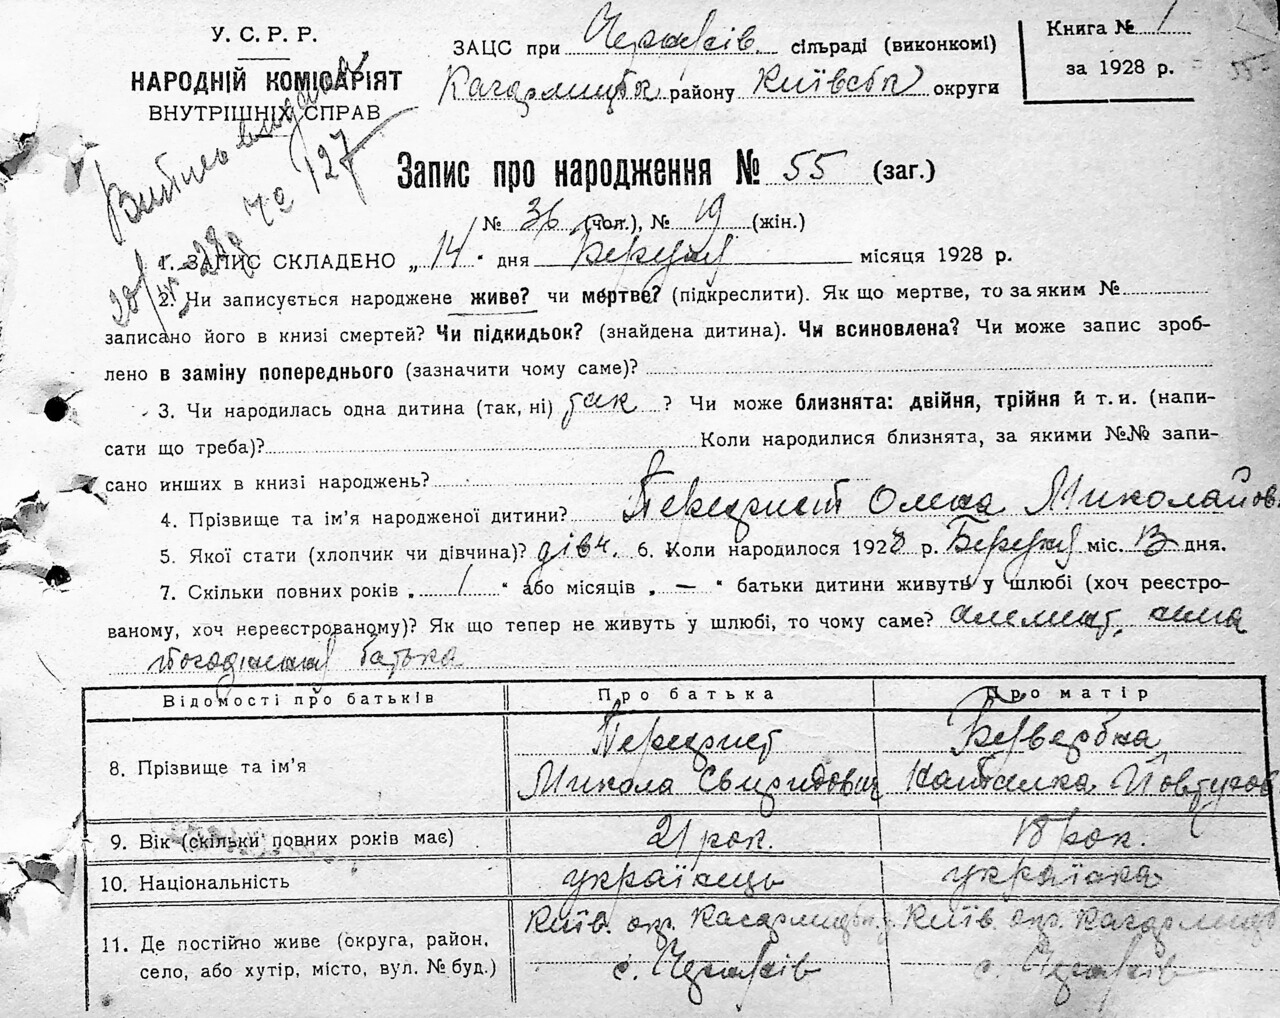 У. С. Р. Р.
НАРОДНІЙ КОМІСАРІЯТ
ВНУТРІШНІХ СПРАВ
ЗАЦС при сільраді (виконкомі)
району Київськ округи
Книга № 1
за 1928 р.
127
Запис про народження № 55 (заг.)
№ 36 (чол.), № 19 (жін.)
1. ЗАПИС СКЛАДЕНО „ 14 " дня Березня місяця 1928 р.
2. Чи записується народжене живе? чи мертве? (підкреслити). Як що мертве, то за яким №
записано його в книзі смертей? Чи підкидьок? (знайдена дитина). Чи всиновлена? Чи може запис зроб-
лено в заміну попереднього (зазначити чому саме)?
3. Чи народилась одна дитина (так, ні) так ? Чи може близнята: двійня, трійня й т. и. (напи-
сати що треба)? Коли народилися близнята, за якими №№ запи-
сано инших в книзі народжень?
4. Прізвище та ім'я народженої дитини? Перехрист Олена Миколайов
5. Якої стати (хлопчик чи дівчина)? дівч. 6. Коли народилося 1928 р. Березня міс. 13 дня.
7. Скільки повних років „ 1 " або місяців „ — " батьки дитини живуть у шлюбі (хоч реєстро-
ваному, хоч нереєстрованому)? Як що тепер не живуть у шлюбі, то чому саме?
батька
Відомості про батьків Про батька Про матір
8. Прізвище та ім'я Перехрист
Микола Свиридович Наталка Йовтухов
9. Вік (скільки повних років має) 21 рок. 18 рок.
10. Національність українець українка
11. Де постійно живе (округа, район, Київ. окр. Кагарлицьк. Київ. окр. Кагарлицьк
село, або хутір, місто, вул. № буд.) с. с.